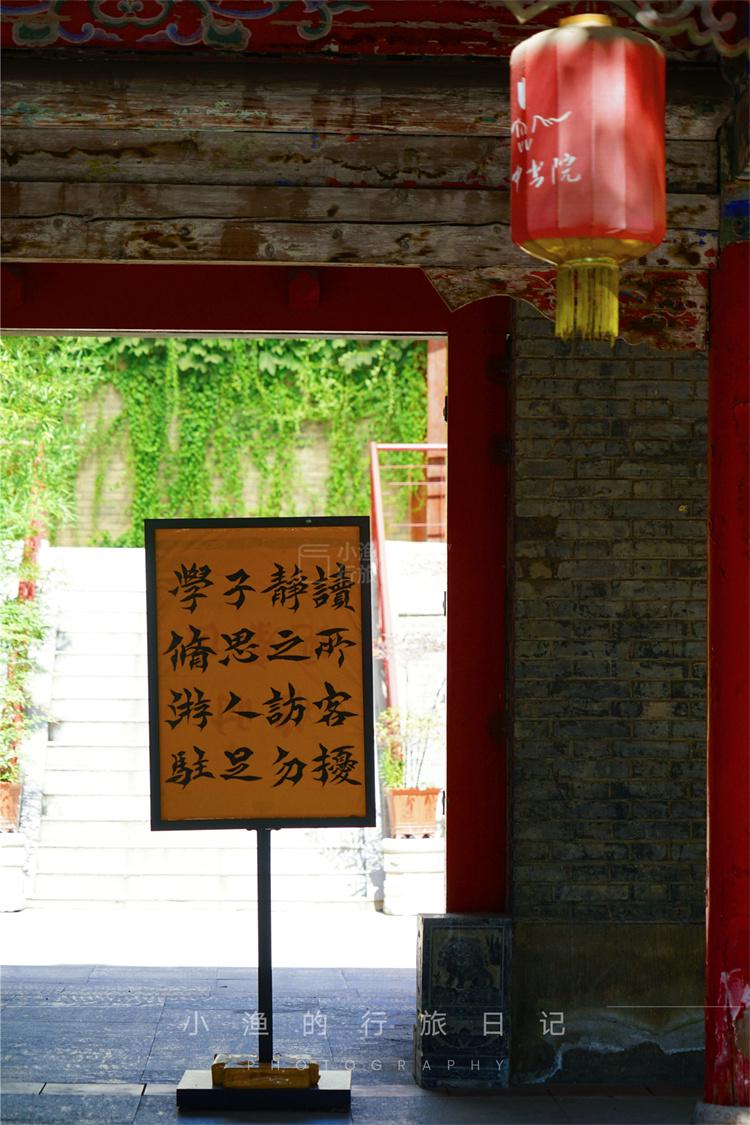 书院
小渔
行旅
學子靜讀
脩思之所
游人訪客
駐足勿擾
小渔的行旅日记
PHOTOGRAPHY